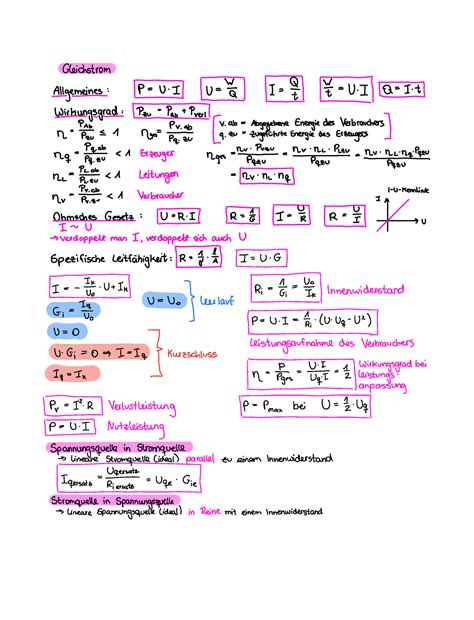 Gleichstrom
Allgemeines: P = U·I U = W/Q I = Q/t W/t = U·I Q = I·t
Wirkungsgrad: P_zu = P_ab + P_verl
η = P_ab/P_zu ≤ 1 η_ges = P_v.ab/P_q.zu [v.ab = Abgegebene Energie des Verbrauchers
q.zu = Zugeführte Energie des Erzeugers]
η_q = P_q.ab/P_q.zu < 1 Erzeuger
η_L = P_L.ab/P_L.zu < 1 Leitungen
η_v = P_v.ab/P_v.zu < 1 Verbraucher
= η_v · η_L · η_q
Ohmsches Gesetz: U = R·I I = U/R R = U/I
I ~ U
→ verdoppelt man I, verdoppelt sich auch U
I-U-Kennlinie
I
U
Spezifische Leitfähigkeit: I = U·G
I = - I_k/U_0 · U + I_k
U = U_0 } Leerlauf
R_i = 1/G_i = U_0/I_k Innenwiderstand
U = 0
U·G_i = 0 ⇒ I = I_q } Kurzschluss
I_q = I_k
P = U·I = 1/R_i · (U·U_q - U²)
Leistungsaufnahme des Verbrauchers
η = P/P_ges = U·I/U_q·I = 1/2 Wirkungsgrad bei Leistungs-
anpassung
P_v = I²·R Verlustleistung
P = P_max bei U = 1/2 · U_q
P = U·I Nutzleistung
Spannungsquelle in Stromquelle
→ lineare Stromquelle (ideal) parallel zu einem Innenwiderstand
I_qersatz = U_qersatz/R_iersatz = U_qe · G_ie
Stromquelle in Spannungsquelle
→ lineare Spannungsquelle (ideal) in Reine mit einem Innenwiderstand